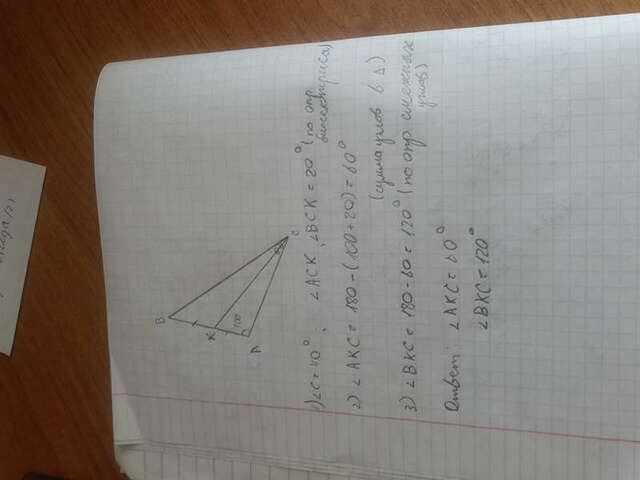 B
K
A
100
C
1) ∠C = 40°; ∠ACK, ∠BCK = 20° (по опр биссектриса)
2) ∠AKC = 180 - (100 + 20) = 60°
(сумма углов в Δ)
3) ∠BKC = 180 - 60 = 120° (по опр смежных углов)
Ответ: ∠AKC = 60°
∠BKC = 120°